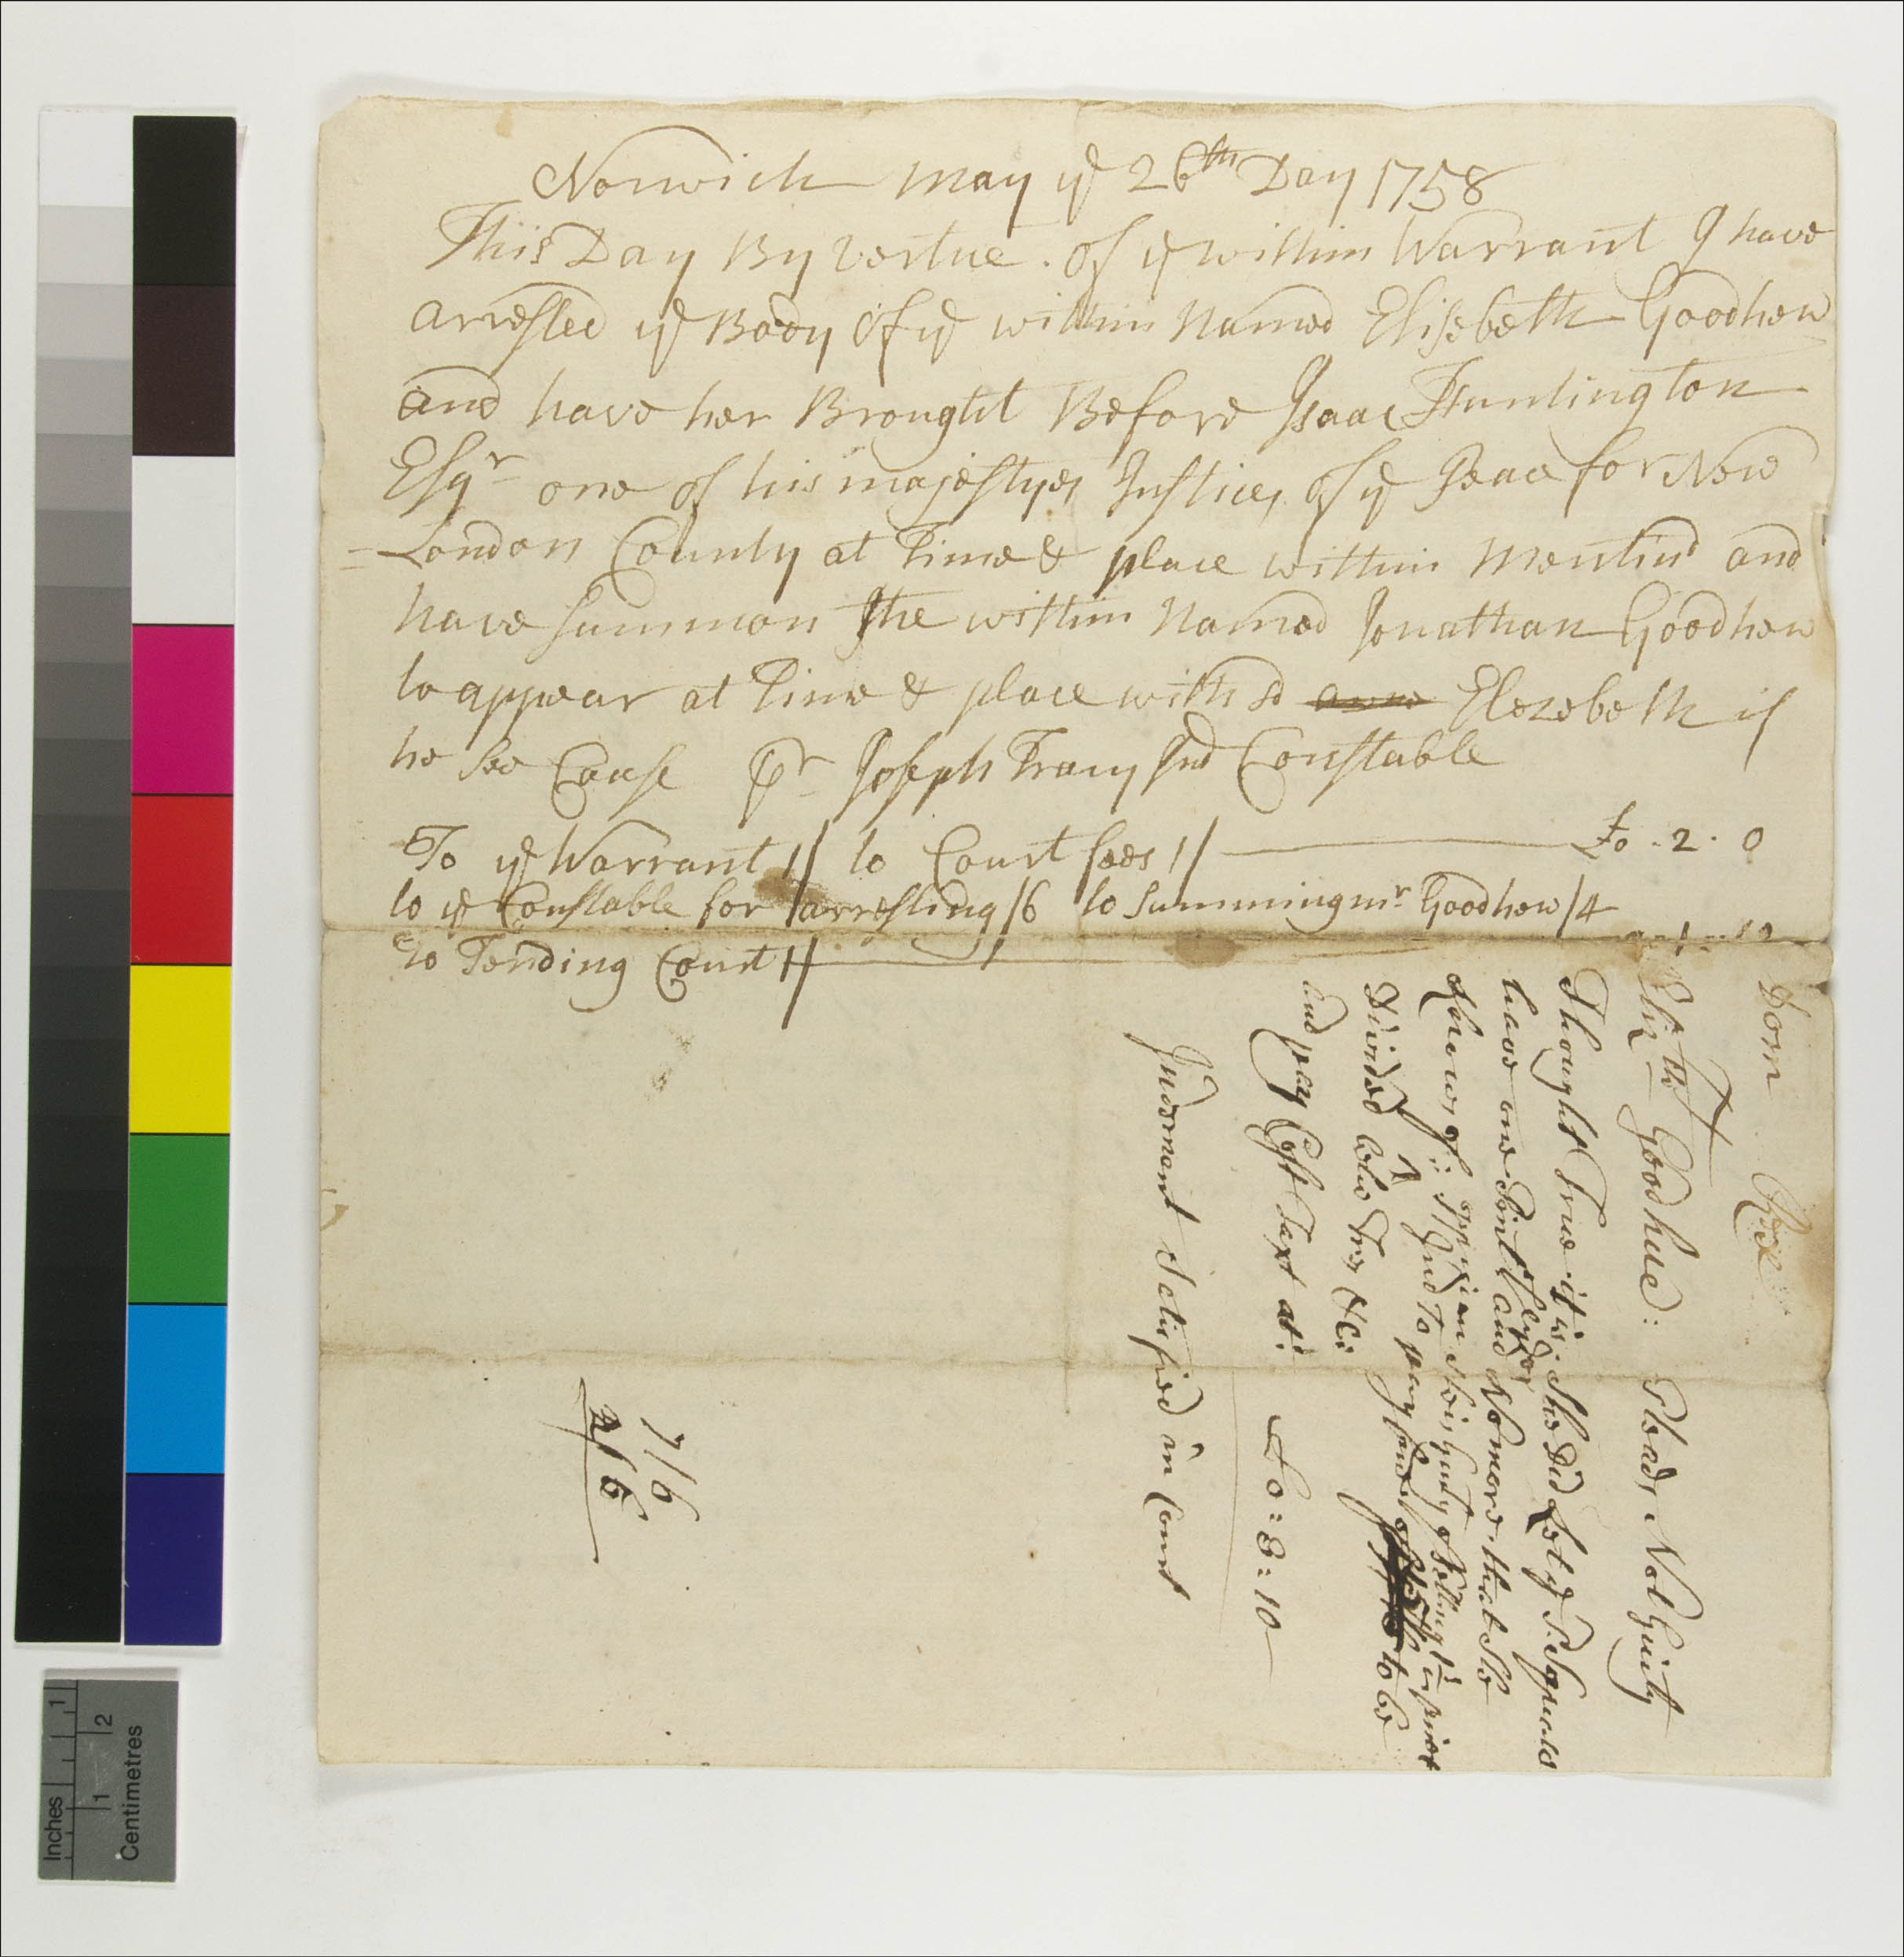 Norwich may ye 26th Day 1758
This Day By vertue of ye within Warrant I have
arrested ye Body of ye within Named Elisebeth Goodhew
and have her Brought Before Isaac Huntington
Esqr one of his majestyes Justices of ye Peace for New
=London County at Time & place within mentind and
have summon the within Named Jonathan Goodhew
to appear at Time & place with sd Elezebeth if
he see Cause pr Joseph Tracy Jnd Constable
To ye Warrant 1/ to Court fees 1/ £0 . 2 . 0
to ye Constable for arresting /6 to summining mr Goodhow /4
to Tending Court 1/
Dom Rex
Eliz th Goodhue: Pleads Not Guilty
Thought True it is. She Did Let ye Sqneals
have one Pint and No more that She
knows of
and pay Cost Taxt at: £0 : 3 : 10
Judgment Satisfied in Court
7/6
2/6
Inches 1
1 2
Centimetres